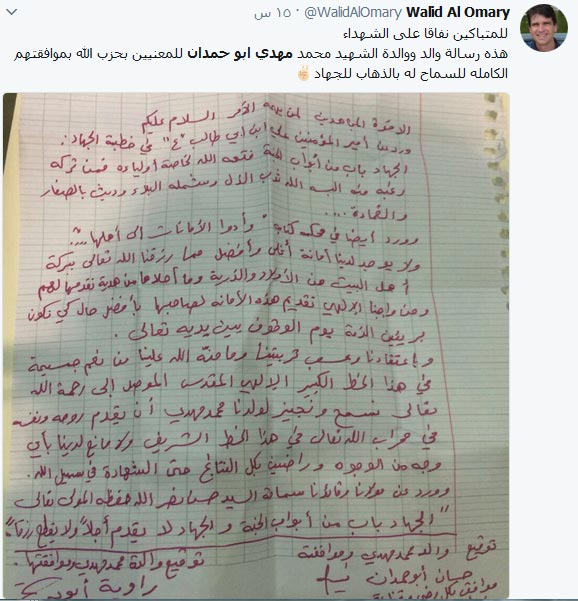 Walid Al Omary @WalidAlOmary · ١٥ س
للمتباكين نفاقا على الشهداء
هذه رسالة والد ووالدة الشهيد محمد مهدي ابو حمدان للمعنيين بحزب الله بموافقتهم
الكامله للسماح له بالذهاب للجهاد✌🏻
الاخوة المجاهدين لمن يهمه الأمر السلام عليكم
ورد عن أمير المؤمنين علي ابن أبي طالب "ع" في خطبة الجهاد:
الجهاد باب من أبواب الجنة فتحه الله لخاصة أولياءه فمن تركه
رغبة عنه البسه الله ثوب الذل وشمله البلاء وديث بالصغار
والقماءة....
وورد أيضا في محكم كتابه "وأدوا الأمانات إلى أهلها"
ولا يوجد لدينا أمانة أغلى وأفضل مما رزقنا الله تعالى ببركة
أهل البيت من الأولاد والذرية وما أحلاها من هدية نقدمها لهم
ومن واجبنا الإلهي تقديم هذه الأمانة لصاحبها بأفضل حال كي نكون
بريئين الذمة يوم الوقوف بين يديه تعالى.
وبإعتقادنا وبحسب تربيتنا وما منّه الله علينا من نعم جسيمة
في هذا الخط الكبير الإلهي المقدس الموصل إلى رحمة الله
تعالى نسمح ونجيز لولدنا محمد مهدي أن يقدم روحه ونفسه
في محراب الله تعالى في هذا الخط الشريف ولا مانع لدينا بأي
وجه من الوجوه وراضين بكل النتائج حتى الشهادة في سبيل الله.
وورد عن مولانا وقائدنا سماحة السيد حسن نصر الله حفظه المولى تعالى
"الجهاد باب من أبواب الجنة والجهاد لا يقدم أجلاً ولا يقطع رزقاً"
توقيع والد محمد مهدي وموافقته
توقيع والدة محمد مهدي وموافقتها.
حسان أبو حمدان
راوية أبو
موافق بكل رضى